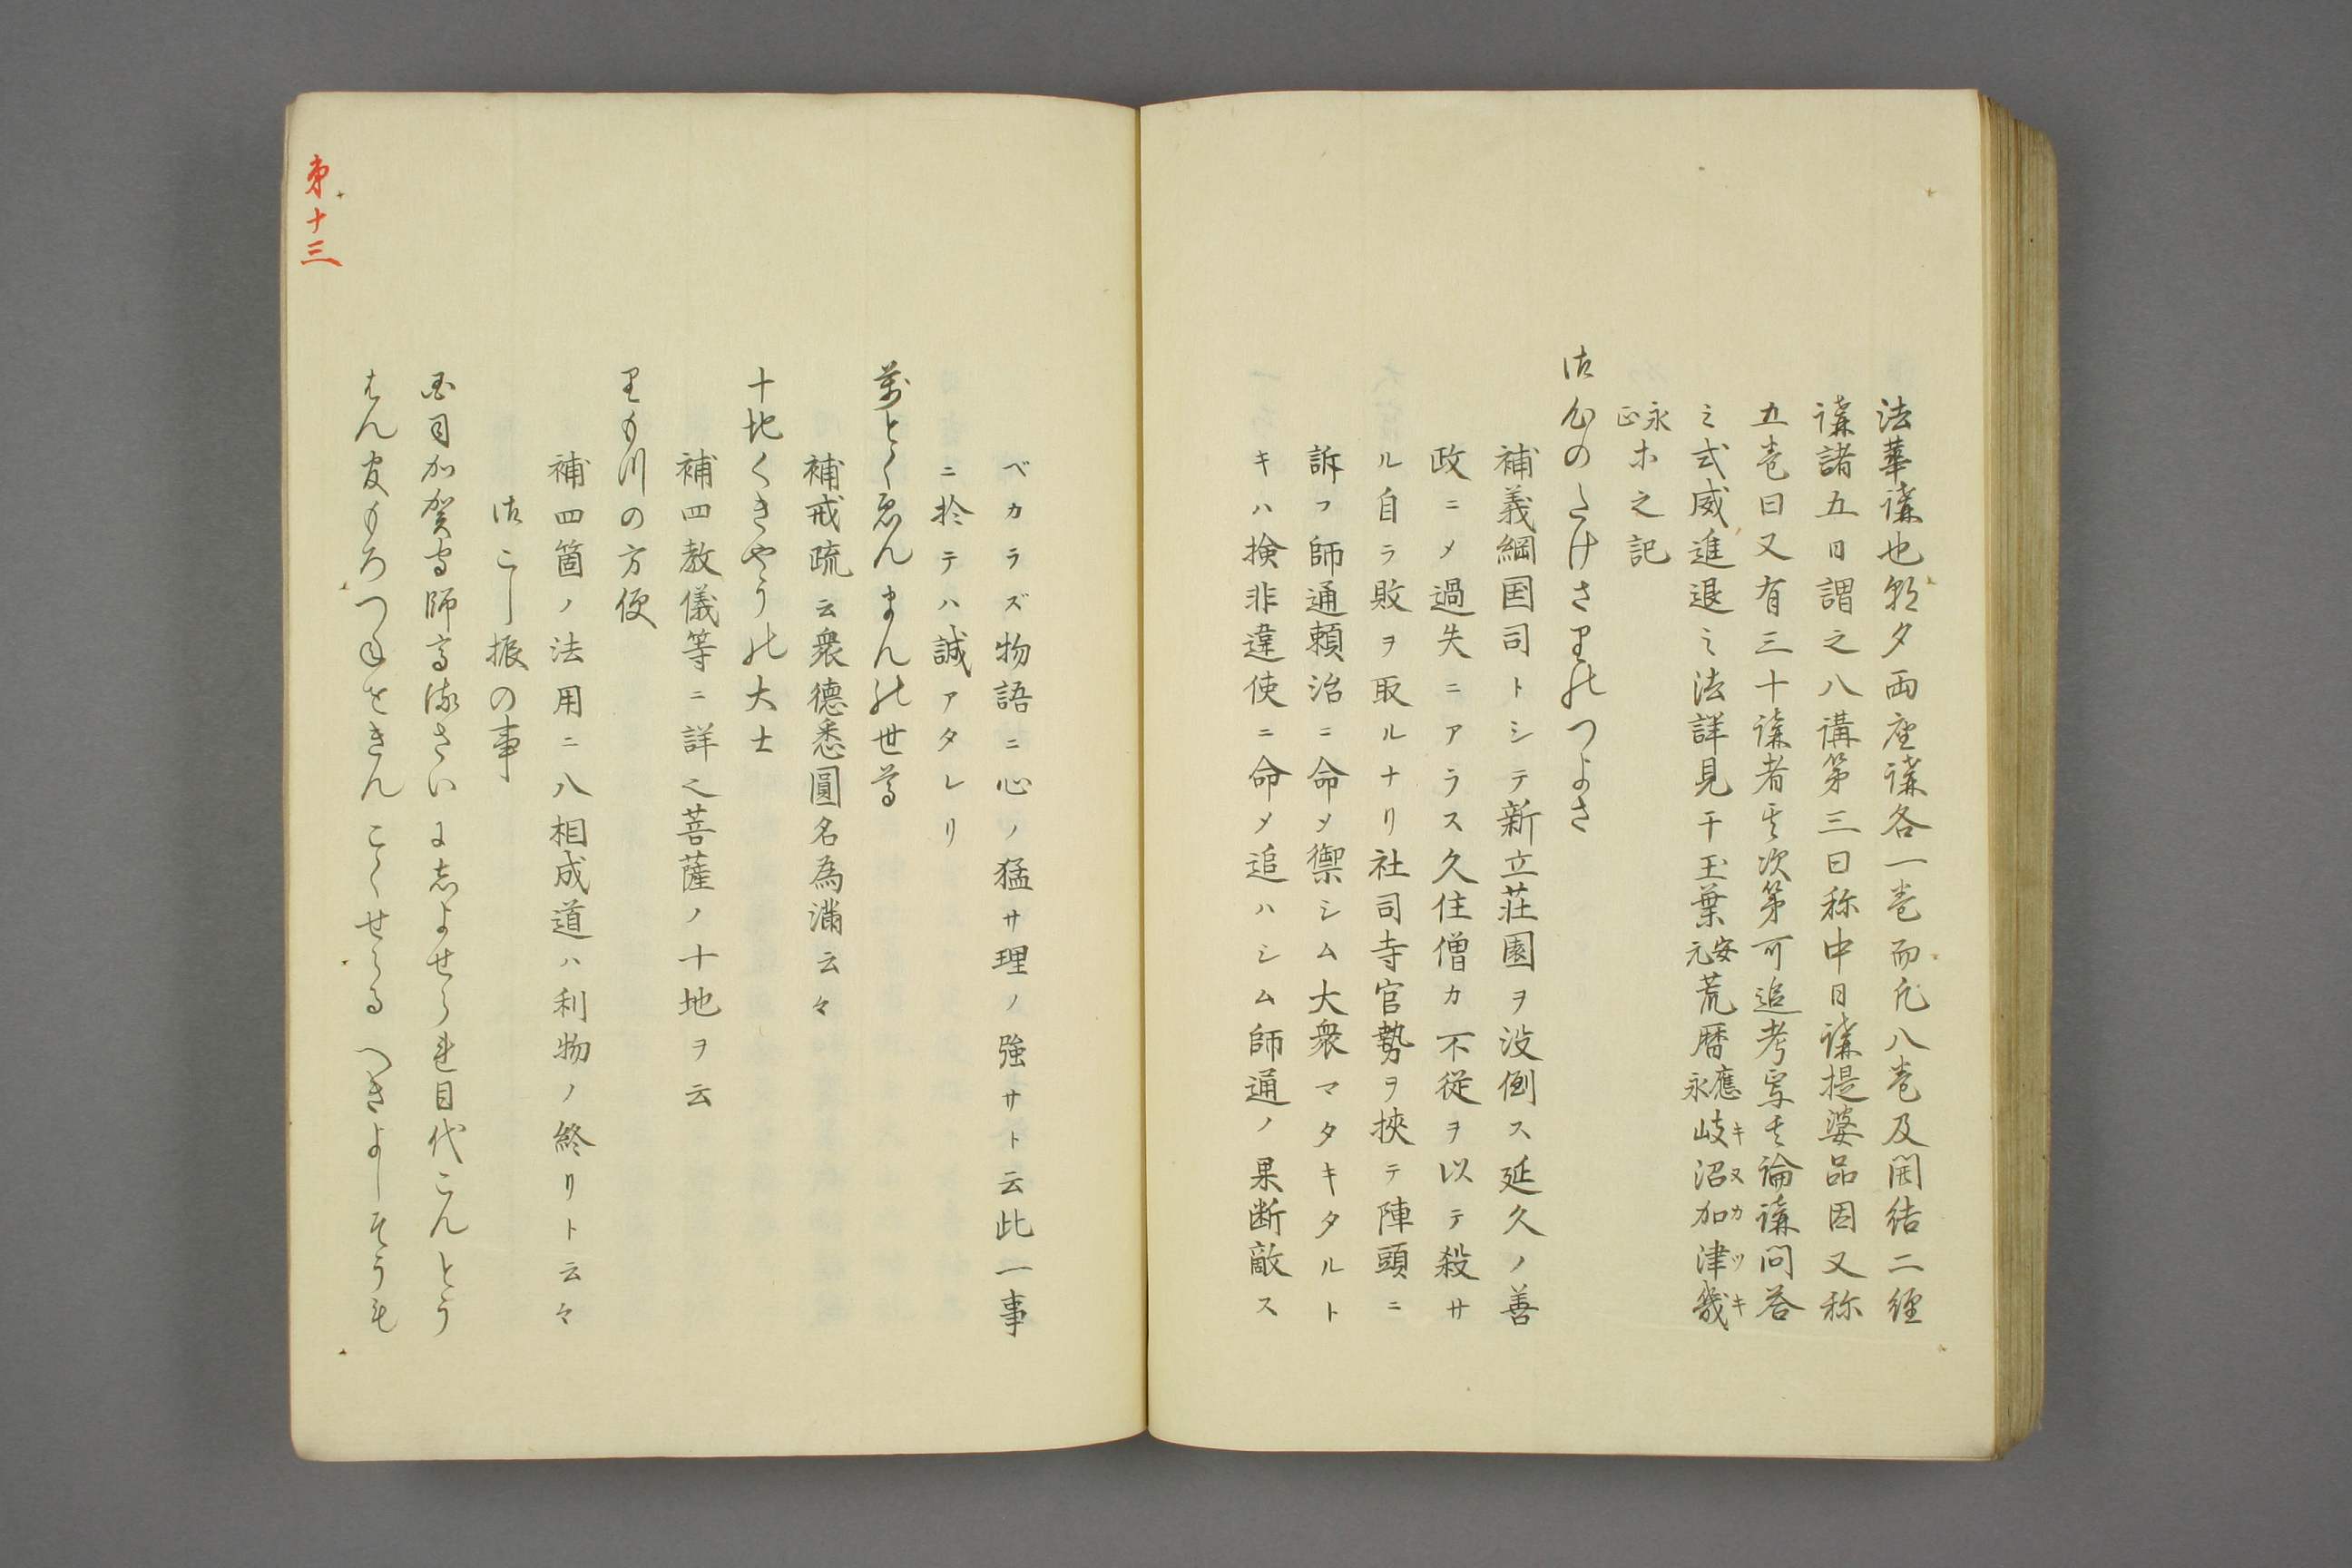 法華講也朝夕両座講各一巻而凡八巻及開結二経
講諸五日謂之八講第三日称中日講提婆品因又称
五巻日又有三十講者其次第可追考写其論講問答
之式威進退之法詳見于玉葉安元荒暦應永岐沼加津幾キヌカツキ
永正ホ之記
御心のたけさ里能つよさ
補義綱国司トシテ新立荘園ヲ没倒ス延久ノ善
政ニメ過失ニアラス久住僧カ不従ヲ以テ殺サ
ル自ラ敗ヲ取ルナリ社司寺官勢ヲ挾テ陣頭ニ
訴フ師通頼治ニ命メ禦シム大衆マタキタルト
キハ検非違使ニ命メ追ハシム師通ノ果断敵ス
ベカラズ物語ニ心ノ猛サ理ノ強サト云此一事
ニ於テハ誠アタレリ
萬とくゑんまん能世尊
補戒疏云衆德悉圓名為滿云々
十地くきやう能大士
補四教儀等ニ詳之菩薩ノ十地ヲ云
里もつの方便
補四箇ノ法用ニ八相成道ハ利物ノ終リト云々
御こし振の事
国司加賀守師高流さいに志よせられ目代こんとう
はん官もろつねをきんこくせらるへきよしそうも
第十三